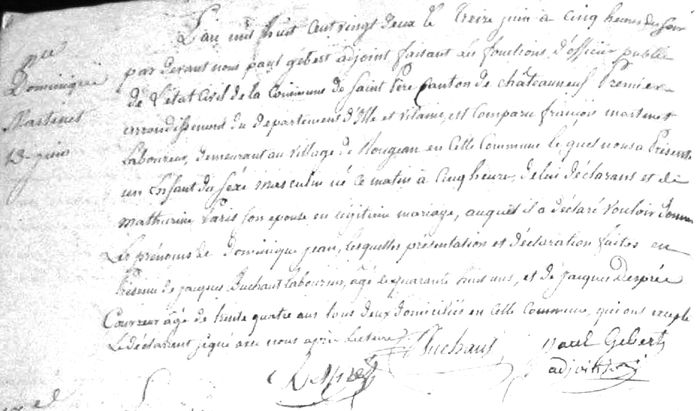 nce
Dominique
Martinet
13 juin
L'an mil huit cent vingt deux le treize juin à cinq heures du soir
par devant nous paul gebert adjoint faisant en fonctions d'officier public
de l'état Civil de la Commune de Saint Père Canton de châteauneuf Premier
arrondissement du département d'Ille et vilaine, est comparu françois martinet
Laboureur, demeurant au village de en Cette Commune le quel nous a Présenté
un Enfant du Séxe masculin né ce matin à Cinq heure, de lui déclarant et de
mathurine Paris son épouse en légitime mariage, auquel il a déclaré vouloir donner
Les prénoms de Dominique jean, lesquelles présentation et déclaration faites en
Présence de jacques Duchaut Laboureur, agé de quarante huit ans, et de jacques Després
Couvreur âgé de trente quatre ans tous deux domiciliés en Cette Commune, qui ont excepté
Le déclarant signé avec nous après Lecture
Duchaut paul Gebert
adjoint